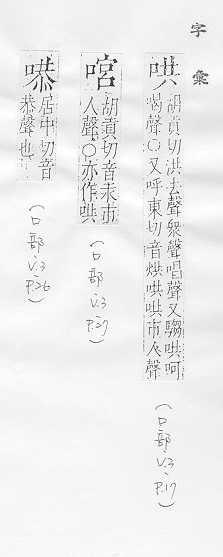 字彙
哄
胡貢切洪去聲衆聲唱聲又騶哄呵
喝聲○又呼東切音烘哄哄市人聲
(口部、V.3、P.17)
胡貢切音汞市
人聲○亦作哄
(口部、V.3、P.27)
居中切音
恭聲也
(口部、V.3、P.26)